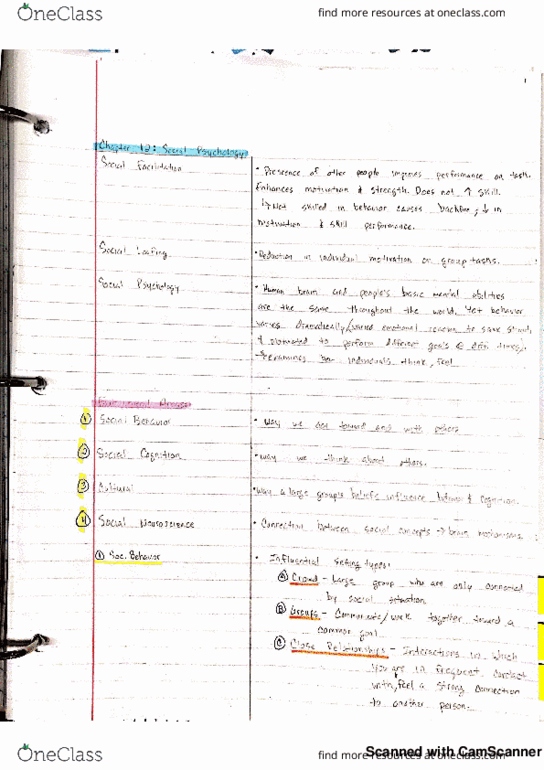 OneClass
find more resources at oneclass.com
1
Chapter 12: Social Psychology
Social Facilitation
• Presence of other people improves performance on task.
Enhances motivation & strength. Does not ↑ skill.
↳ Not skilled in behavior causes backfire; ↓ in
motivation & skill performance.
Social Loafing
• Reduction in individual motivation on group tasks.
Social Psychology
• Human brain and people's basic mental abilities
are the same throughout the world. Yet behavior
varies emotional to same stimuli
& to perform different goals @ diff. times.
examines how individuals think, feel
① Social Behavior
• Way we act toward and with others
② Social Cognition
• way we think about others.
③ Cultural
• Way a large group's beliefs influence behavior & cognition.
④ Social Neuroscience
• Connection between social concepts → brain mechanisms
① Soc. Behavior
• Influential setting types:
Ⓐ Crowd - Large group who are only connected
by social situation
Ⓑ Groups - Communicate/work together toward a
common goal
Ⓒ Close Relationships - Interactions in which
you are in frequent contact
with, feel a strong connection
to another person.
Scanned with CamScanner
OneClass
find more resources at oneclass.com